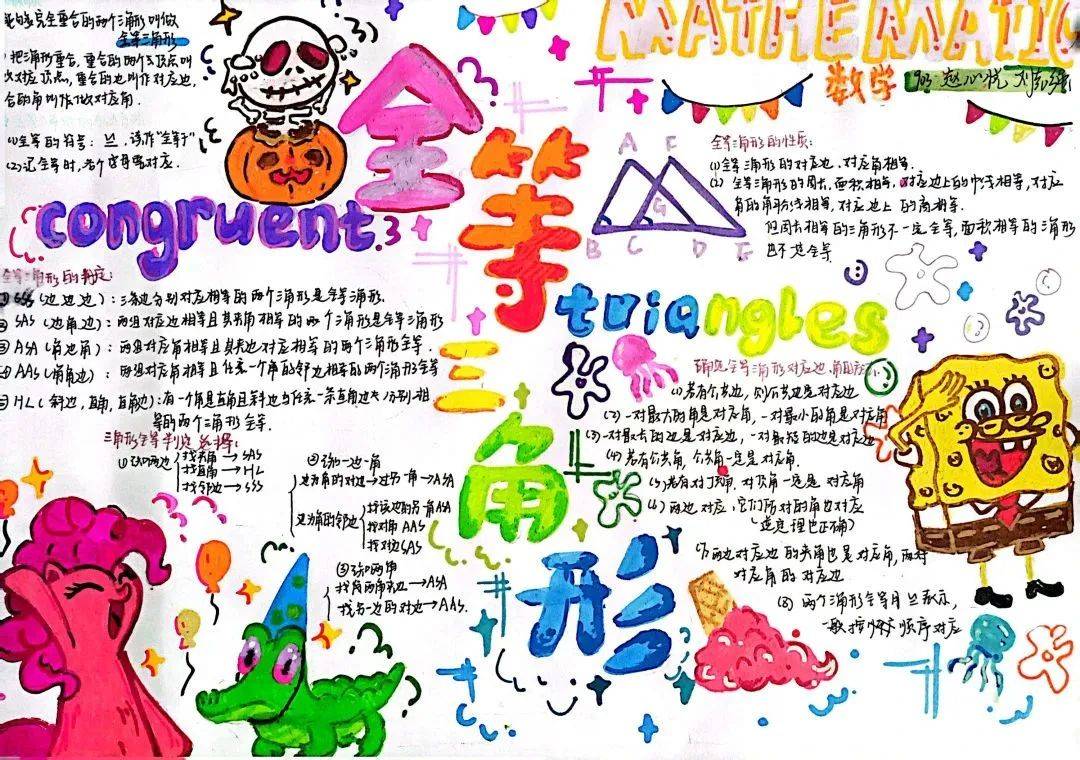 能够完全重合的两个三角形叫做
全等三角形
把三角形重合,重合的两个顶点叫
对应顶点,重合的边叫作对应边,
合的角叫作做对应角.
(1)全等的符号:≌,读作"全等于"
(2)记全等时,各个字母要对应.
congruent
全等三角形
triangles
MATHEMATIC
数学
全等三角形的性质:
(1)全等三角形的对应边,对应角相等.
(2)全等三角形的周长,面积相等,对应边上的中线相等,对应
角的角平分线相等,对应边上的高相等.
但周长相等的三角形不一定全等,面积相等的三角形
也不一定全等
A F
G
B C D E
全等三角形的判定:
① SSS(边边边):三条边分别对应相等的两个三角形是全等三角形.
② SAS(边角边):两组对应边相等且其夹角相等的两个三角形是全等三角形
③ ASA(角边角):两组对应角相等且其夹边对应相等的两个三角形全等.
④ AAS(角角边):两组对应角相等且任意一个角的邻边相等的两个三角形全等
⑤ HL(斜边,直角,直角边):有一个角是直角且斜边与任意一条直角边长分别相
等的两个三角形全等.
三角形全等判定思路:
①已知两边
找夹角→SAS
找直角→HL
找邻边→SSS
②已知一边一角
边为角的对边→找另一角→ASA
边为角的邻边
找该边的另一角ASA
找对角 AAS
找对边SAS
③已知两角
找两角夹边→ASA
找另一边的对边→AAS.
确定全等三角形对应边,角的方法
(1)若有公共边,则公共边是对应边
(2)一对最大的角是对应角,一对最小的角是对应角
(3)一对最长的边是对应边,一对最短的边是对应边
(4)若有公共角,公共角一定是对应角.
(5)若有对顶角,对顶角一定是对应角
(6)两边对应,它们所对的角也对应
(逆定理也正确)
(7)两边对应边的夹角也是对应角,两对
对应角的对应边
(8)两个三角形全等用≌表示,
一般按顺序对应